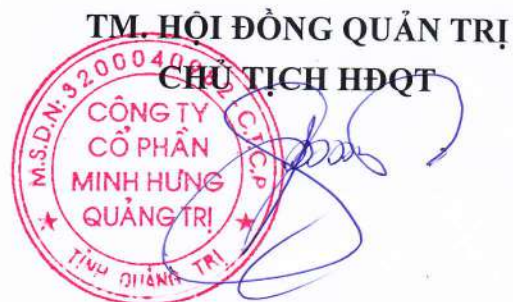 TM. HỘI ĐỒNG QUẢN TRỊ
CHỦ TỊCH HĐQT
M.S.D.N: C.T.C.P
CÔNG TY
CỔ PHẦN
MINH HƯNG
QUẢNG TRỊ
TỈNH QUẢNG TRỊ